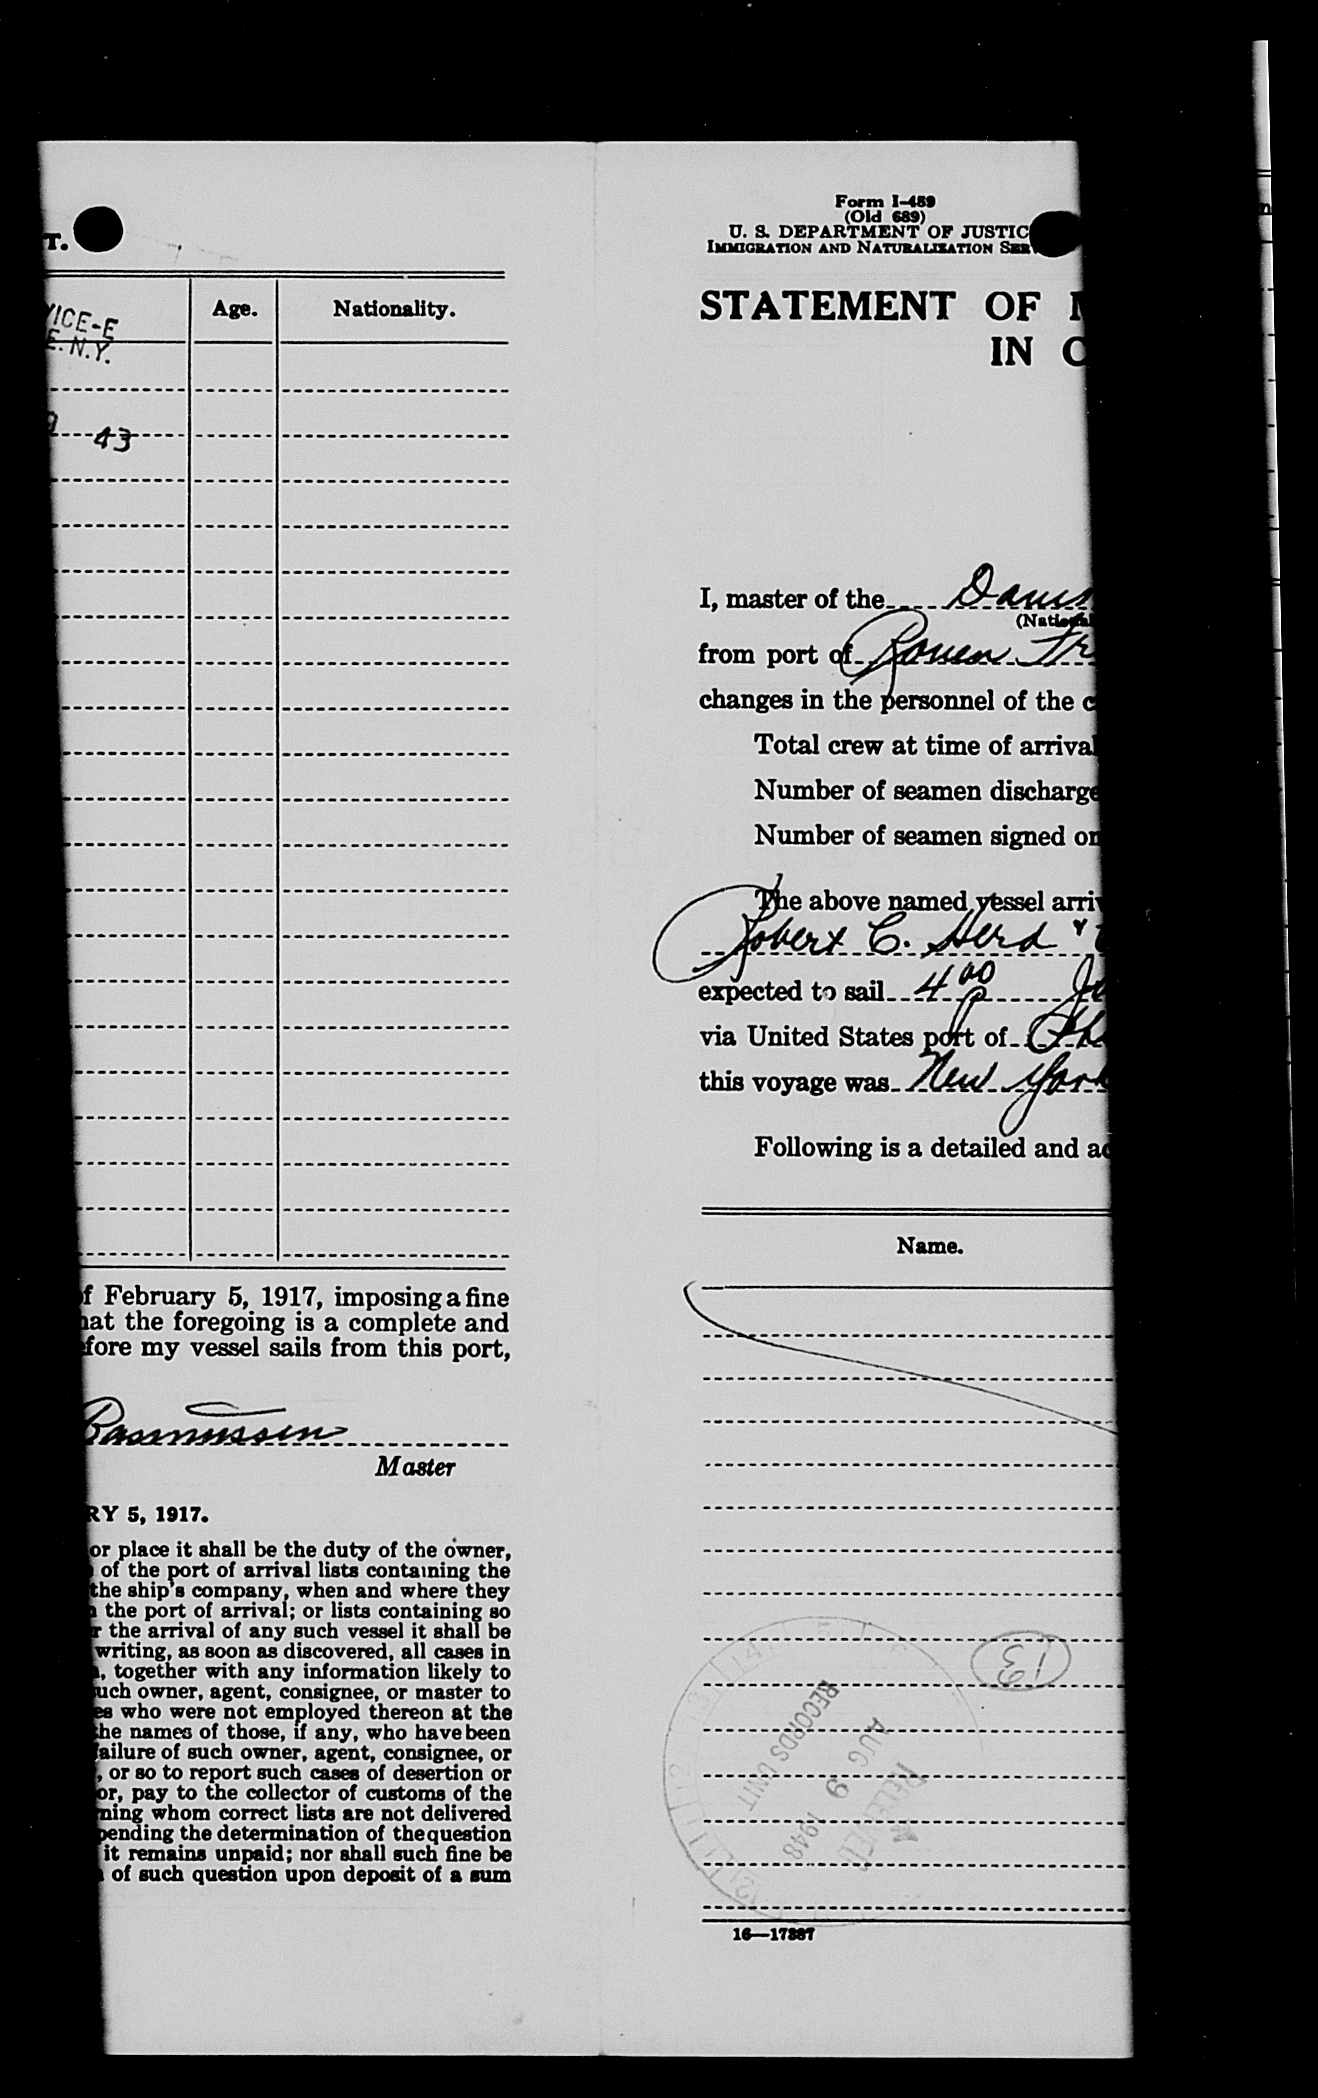 T.
VICE-E
E. N.Y.
Age. Nationality.
43
f February 5, 1917, imposing a fine
hat the foregoing is a complete and
fore my vessel sails from this port,
Rasmussen
Master
RY 5, 1917.
or place it shall be the duty of the owner,
of the port of arrival lists containing the
the ship's company, when and where they
the port of arrival; or lists containing so
r the arrival of any such vessel it shall be
writing, as soon as discovered, all cases in
, together with any information likely to
uch owner, agent, consignee, or master to
es who were not employed thereon at the
he names of those, if any, who have been
ailure of such owner, agent, consignee, or
, or so to report such cases of desertion or
or, pay to the collector of customs of the
ning whom correct lists are not delivered
pending the determination of the question
it remains unpaid; nor shall such fine be
of such question upon deposit of a sum
Form I-489
(Old 689)
U. S. DEPARTMENT OF JUSTIC
IMMIGRATION AND NATURALIZATION SER
STATEMENT OF
IN C
I, master of the Danis
(National
from port of Rouen Fr
changes in the personnel of the c
Total crew at time of arrival
Number of seamen discharge
Number of seamen signed on
The above named vessel arriv
Robert C. Herd &
expected to sail 4 00 p Ju
via United States port of
this voyage was New York
Following is a detailed and ac
Name.
13
RECEIVED
AUG 9 1948
RECORDS UNIT
16—17887